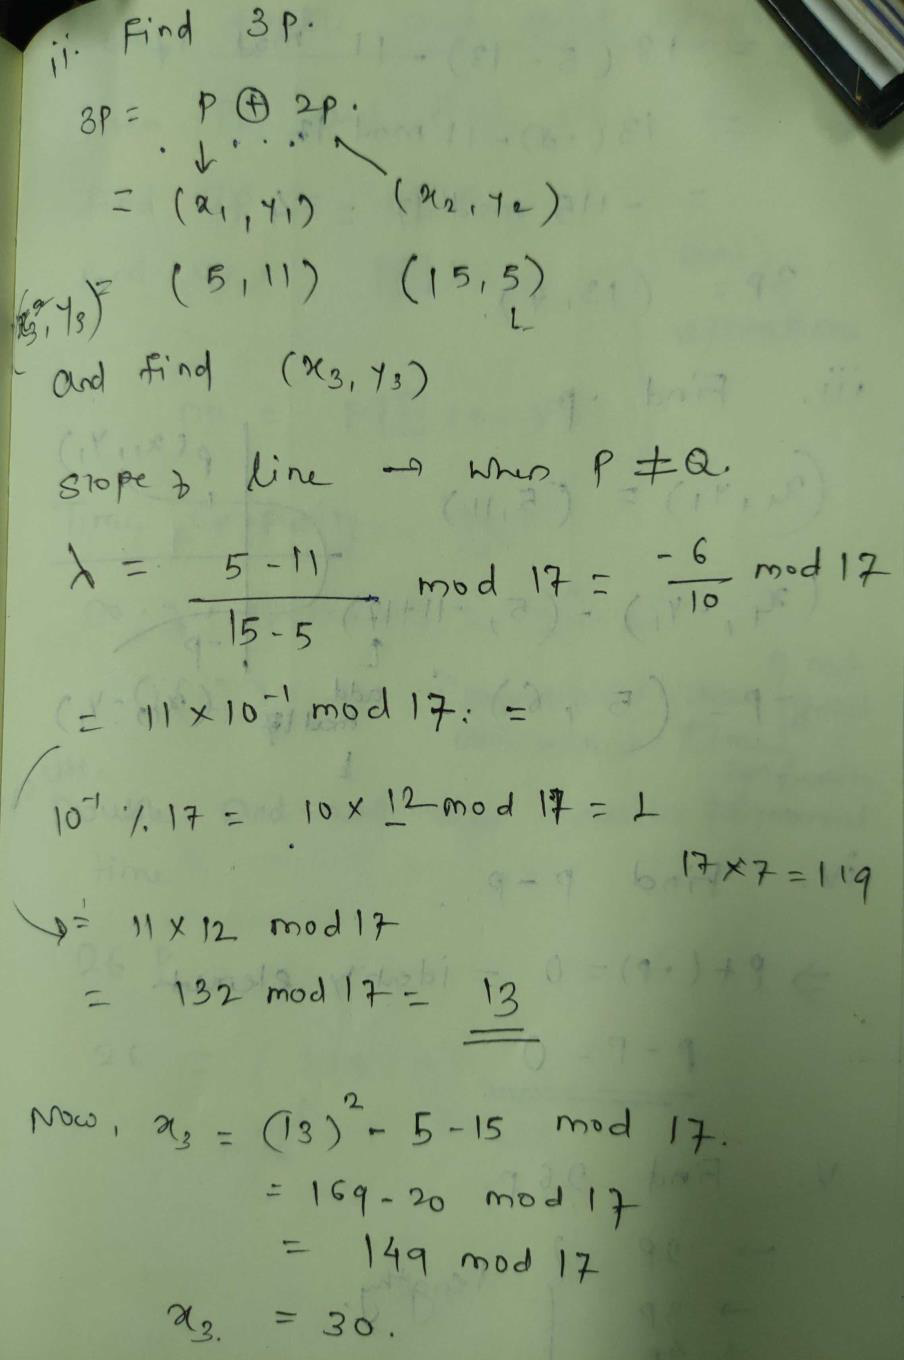 ii. Find 3P.
3P = P ⊕ 2P.
= (x₁, y₁) (x₂, y₂)
(x₃, y₃) = (5, 11) (15, 5)
and find (x₃, y₃)
slope of line → when P ≠ Q.
λ = (5 - 11)/(15 - 5) mod 17 = -6/10 mod 17
= 11 × 10⁻¹ mod 17. =
10⁻¹ % 17 = 10 × 12 mod 17 = 1
17 × 7 = 119
= 11 × 12 mod 17
= 132 mod 17 = 13
Now, x₃ = (13)² - 5 - 15 mod 17.
= 169 - 20 mod 17
= 149 mod 17
x₃. = 30.